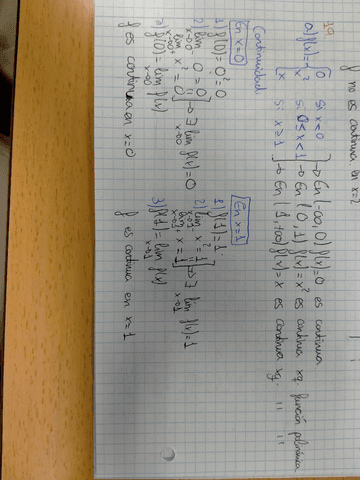 f no es continua en x=2
19
a) f(x) = { 0 si x<0 → En (-∞, 0) f(x)=0 es continua
x² si 0≤x<1 → En (0, 1) f(x)=x² es continua xq. función polinómica
x si x≥1 → En (1, +∞) f(x)=x es continua xq. " "
Continuidad
En x=0
1) f(0)=0²=0
2) lim x→0⁻ 0 = 0
lim x→0⁺ x² = 0 → ∃ lim x→0 f(x)=0
3) f(0) = lim x→0 f(x)
f es continua en x=0
En x=1
1) f(1)=1
2) lim x→1⁻ x² = 1
lim x→1⁺ x = 1 → ∃ lim x→1 f(x)=1
3) f(1) = lim x→1 f(x)
f es continua en x=1